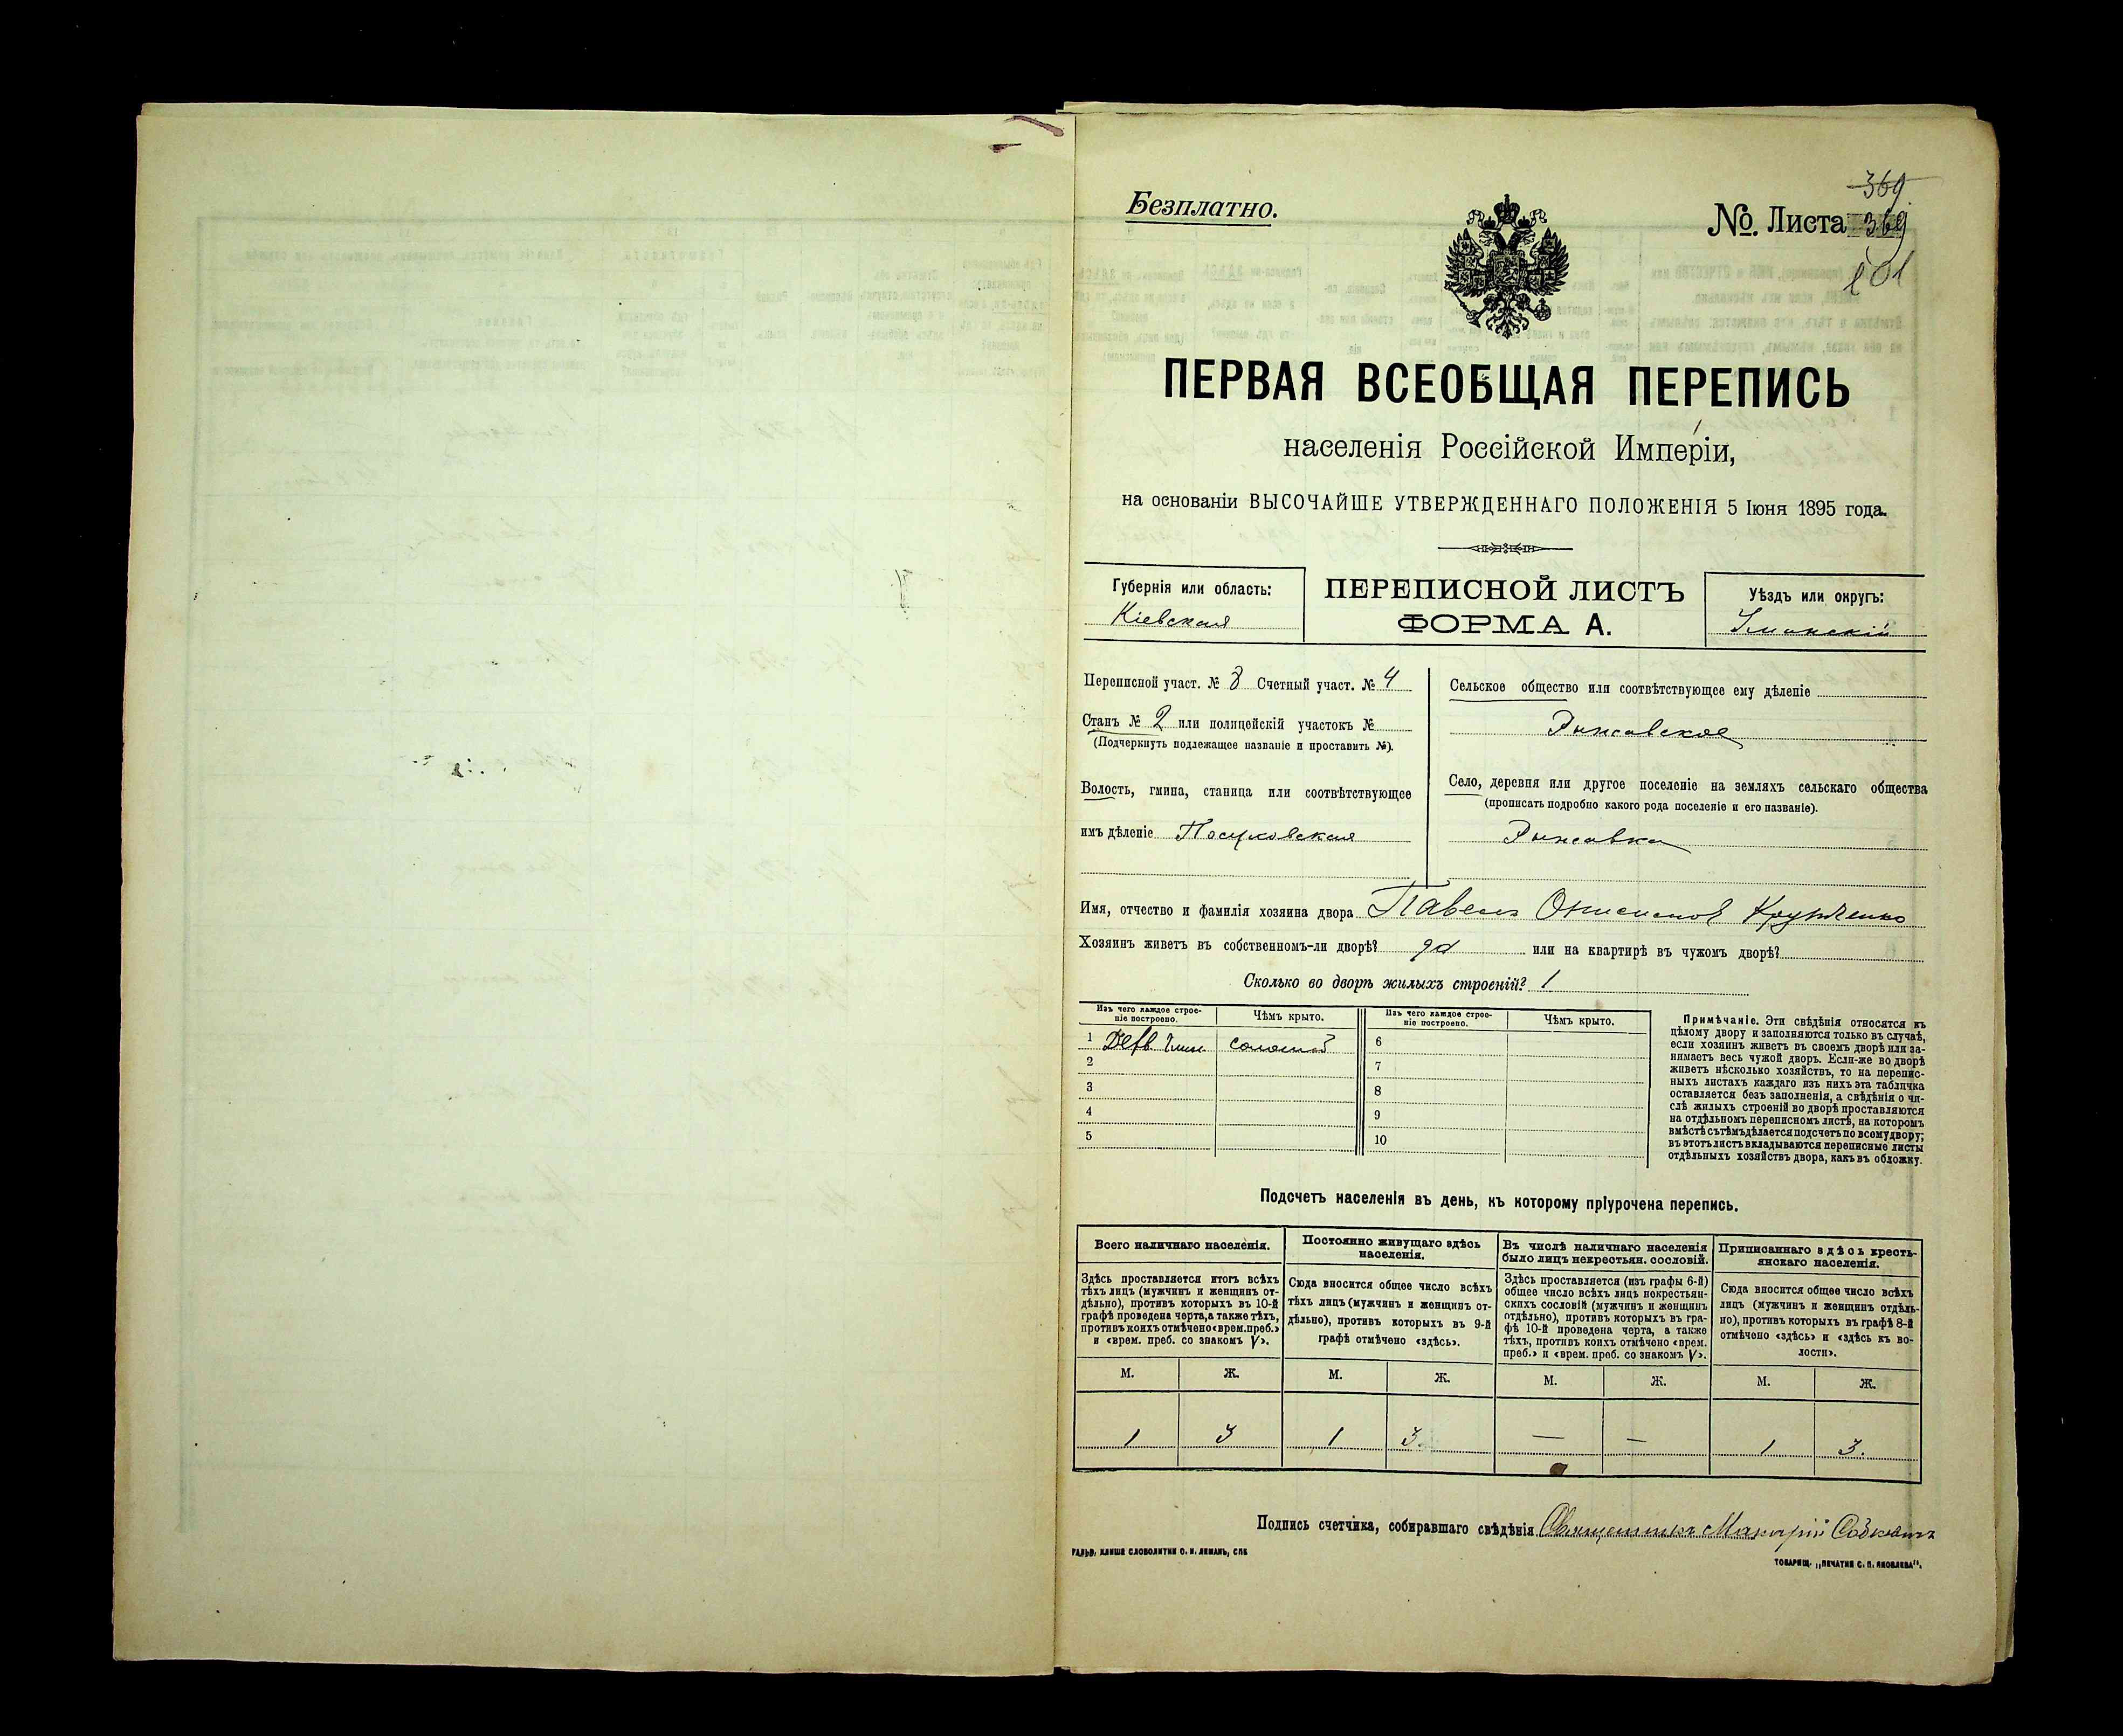 Безплатно.
369
№. Листа 369
101
ПЕРВАЯ ВСЕОБЩАЯ ПЕРЕПИСЬ
населенія Россійской Имперіи,
на основаніи ВЫСОЧАЙШЕ УТВЕРЖДЕННАГО ПОЛОЖЕНІЯ 5 Іюня 1895 года.
Губернія или область:
Кіевская
ПЕРЕПИСНОЙ ЛИСТЪ
ФОРМА А.
Уѣздъ или округъ:
Уманскій
Переписной участ. № 8 Счетный участ. № 4
Станъ № 2 или полицейскій участокъ №
(Подчеркнуть подлежащее названіе и проставить №).
Волость, гмина, станица или соотвѣтствующее
имъ дѣленіе Посуховская
Сельское общество или соотвѣтствующее ему дѣленіе
Рыжавское
Село, деревня или другое поселеніе на земляхъ сельскаго общества
(прописать подробно какого рода поселеніе и его названіе).
Рыжавка
Имя, отчество и фамилія хозяина двора Павелъ Онисимов
Хозяинъ живетъ въ собственномъ-ли дворѣ? да или на квартирѣ въ чужомъ дворѣ?
Сколько во дворѣ жилыхъ строеній? 1
Изъ чего каждое строе-
ніе построено.
Чѣмъ крыто.
Изъ чего каждое строе-
ніе построено.
Чѣмъ крыто.
1 Дерв. Глин. соломой
2
3
4
5
6
7
8
9
10
Примѣчаніе. Эти свѣдѣнія относятся къ
цѣлому двору и заполняются только въ случаѣ,
если хозяинъ живетъ въ своемъ дворѣ или за-
нимаетъ весь чужой дворъ. Если-же во дворѣ
живетъ нѣсколько хозяйствъ, то на перепис-
ныхъ листахъ каждаго изъ нихъ эта табличка
оставляется безъ заполненія, а свѣдѣнія о чи-
слѣ жилыхъ строеній во дворѣ проставляются
на отдѣльномъ переписномъ листѣ, на которомъ
вмѣстѣ съ тѣмъ дѣлается подсчетъ по всему двору;
въ этотъ листъ вкладываются переписные листы
отдѣльныхъ хозяйствъ двора, какъ въ обложку.
Подсчетъ населенія въ день, къ которому пріурочена перепись.
Всего наличнаго населенія.
Здѣсь проставляется итогъ всѣхъ
тѣхъ лицъ (мужчинъ и женщинъ от-
дѣльно), противъ которыхъ въ 10-й
графѣ проведена черта, а также тѣхъ,
противъ коихъ отмѣчено «врем. преб.»
и «врем. преб. со знакомъ V».
Постоянно живущаго здѣсь
населенія.
Сюда вносится общее число всѣхъ
тѣхъ лицъ (мужчинъ и женщинъ от-
дѣльно), противъ которыхъ въ 9-й
графѣ отмѣчено «здѣсь».
Въ числѣ наличнаго населенія
было лицъ некрестьян. сословій.
Здѣсь проставляется (изъ графы 6-й)
общее число всѣхъ лицъ некрестьян-
скихъ сословій (мужчинъ и женщинъ
отдѣльно), противъ которыхъ въ гра-
фѣ 10-й проведена черта, а также
тѣхъ, противъ коихъ отмѣчено «врем.
преб.» и «врем. преб. со знакомъ V».
Приписаннаго здѣсь кресть-
янскаго населенія.
Сюда вносится общее число всѣхъ
лицъ (мужчинъ и женщинъ отдѣль-
но), противъ которыхъ въ графѣ 8-й
отмѣчено «здѣсь» и «здѣсь къ во-
лости».
М. Ж. М. Ж. М. Ж. М. Ж.
1 3 1 3. — — 1 3.
Подпись счетчика, собиравшаго свѣдѣнія Священникъ Макарій
КЛИШЕ СЛОВОЛИТНИ О. И. ЛЕМАНЪ, СПБ
ТОВАРИЩ. „ПЕЧАТНЯ С. П. ЯКОВЛЕВА".